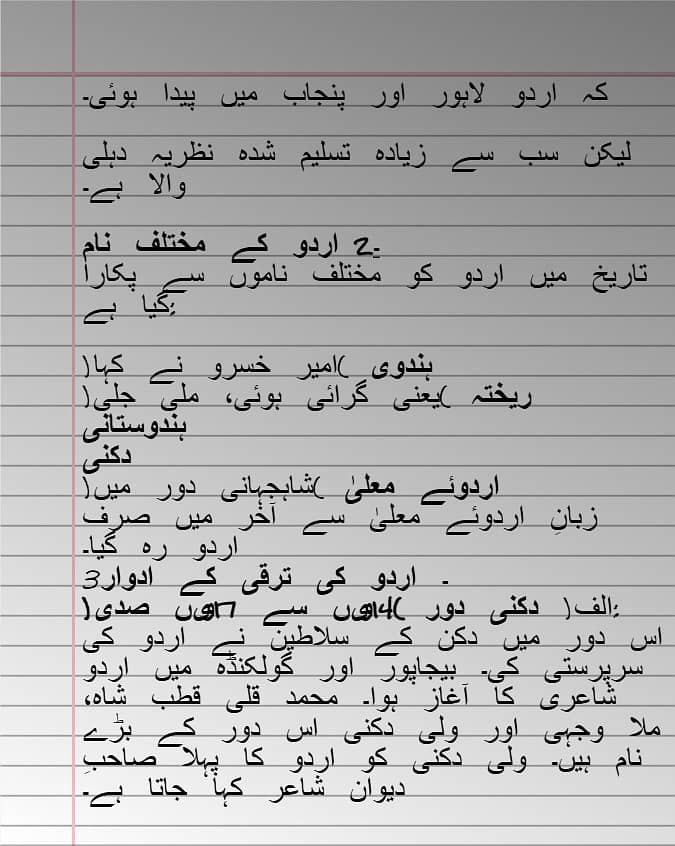 کہ اردو لاہور اور پنجاب میں پیدا ہوئی۔
لیکن سب سے زیادہ تسلیم شدہ نظریہ دہلی
والا ہے۔
2۔ اردو کے مختلف نام
تاریخ میں اردو کو مختلف ناموں سے پکارا
گیا ہے:
ہندوی (امیر خسرو نے کہا)
ریختہ (یعنی گرائی ہوئی، ملی جلی)
ہندوستانی
دکنی
اردوئے معلیٰ (شاہجہانی دور میں)
زبانِ اردوئے معلیٰ سے آخر میں صرف
اردو رہ گیا۔
3۔ اردو کی ترقی کے ادوار
الف) دکنی دور (14ویں سے 17ویں صدی):
اس دور میں دکن کے سلاطین نے اردو کی
سرپرستی کی۔ بیجاپور اور گولکنڈہ میں اردو
شاعری کا آغاز ہوا۔ محمد قلی قطب شاہ،
ملا وجہی اور ولی دکنی اس دور کے بڑے
نام ہیں۔ ولی دکنی کو اردو کا پہلا صاحبِ
دیوان شاعر کہا جاتا ہے۔